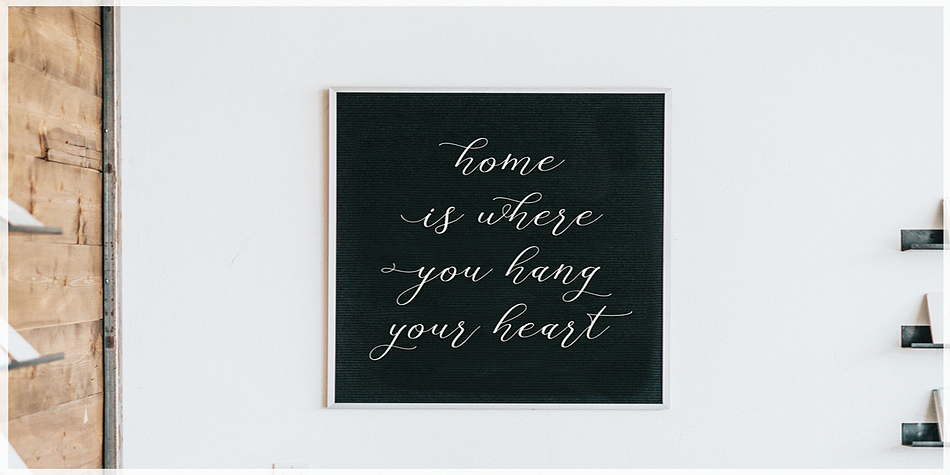 home
is where
you hang
your heart